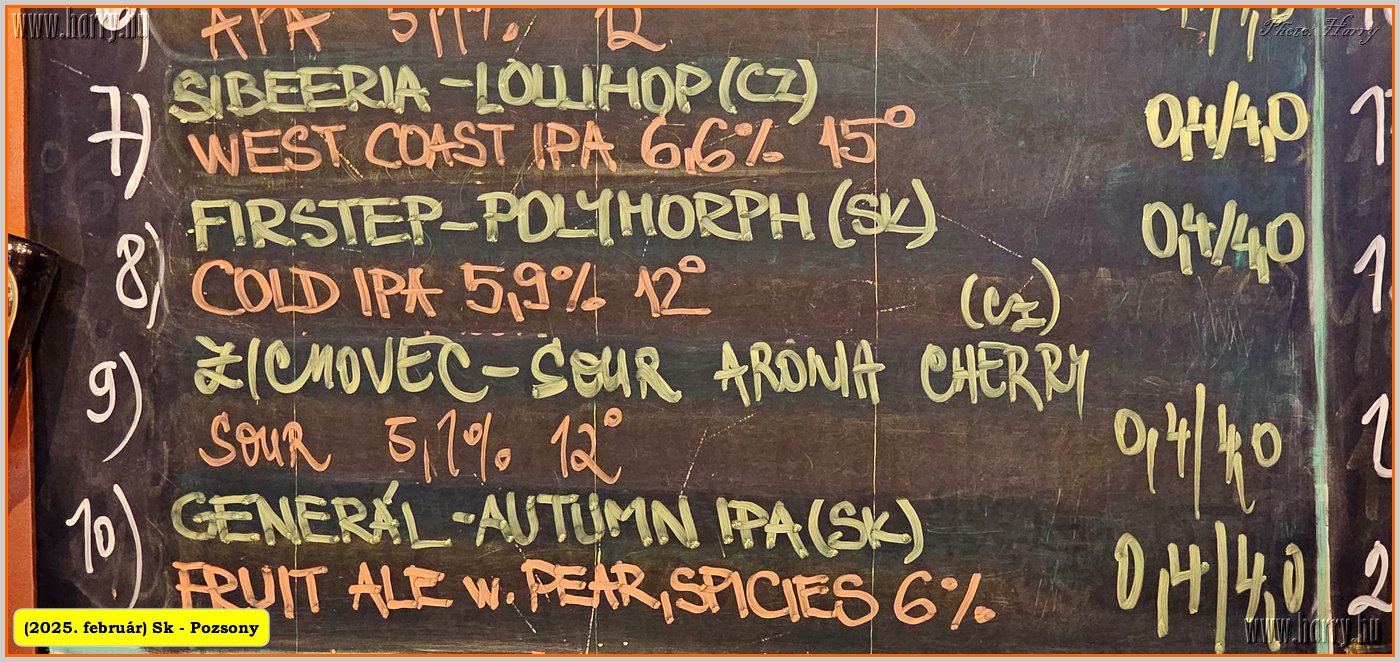 www.harry.hu
Photo: Harry
APA 5,1% 12
7) SIBEERIA - LOLLIHOP (CZ) 0,4/4,0
WEST COAST IPA 6,6% 15°
8) FIRSTEP - POLYMORPH (SK) 0,4/4,0
COLD IPA 5,9% 12°
(CZ)
9) ZICHOVEC - SOUR ARONIA CHERRY
SOUR 5,1% 12° 0,4/4,0
10) GENERÁL - AUTUMN IPA (SK) 0,4/4,0
FRUIT ALE w. PEAR, SPICIES 6%
(2025. február) Sk - Pozsony
www.harry.hu